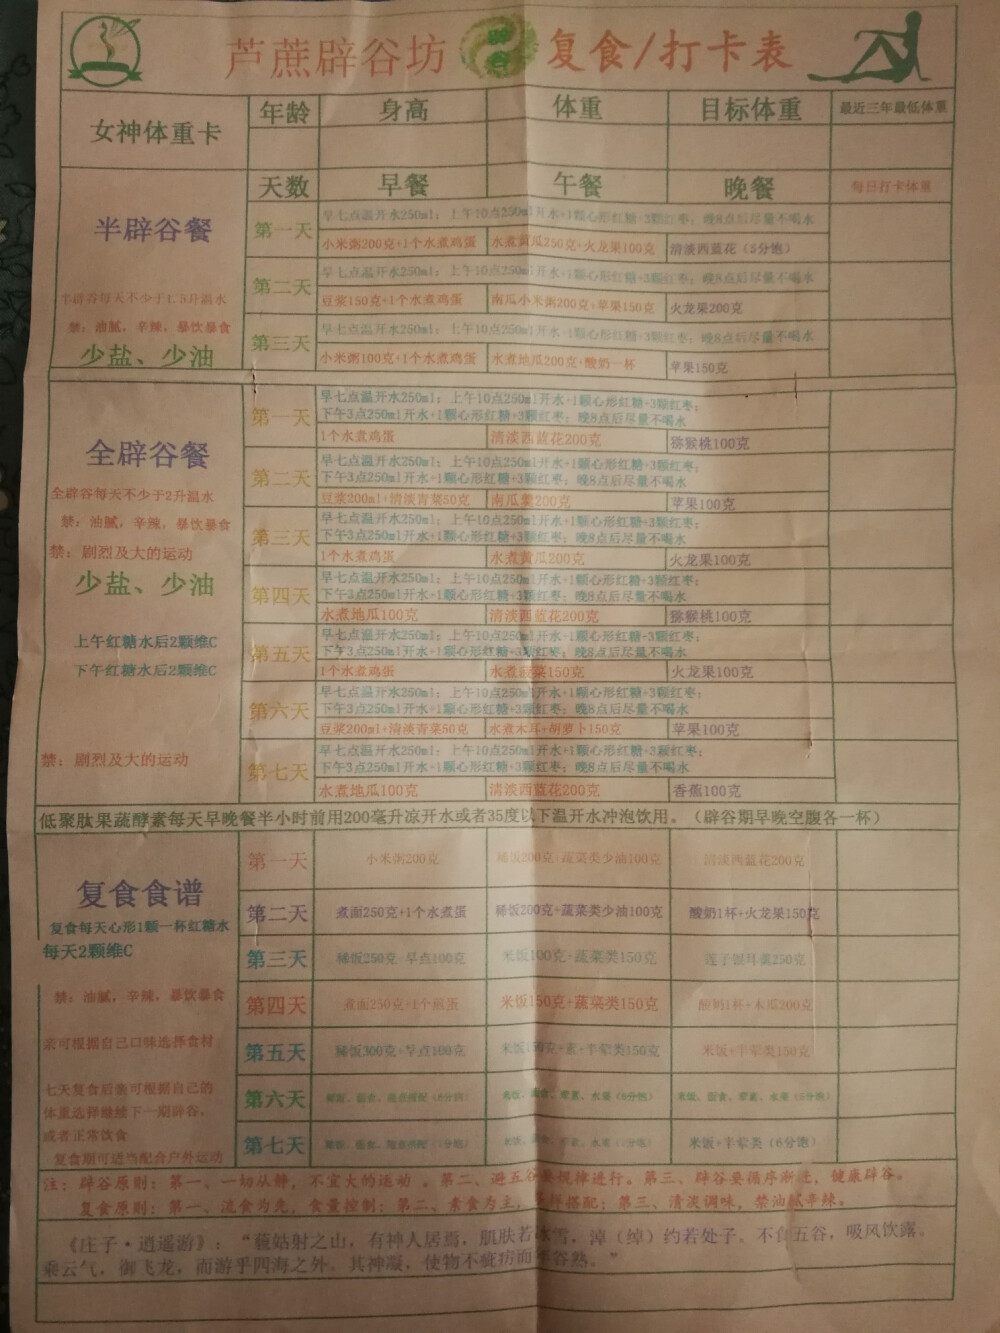 芦蔗辟谷坊 辟谷 复食/打卡表
女神体重卡 年龄 身高 体重 目标体重 最近三年最低体重
天数 早餐 午餐 晚餐 每日打卡体重
半辟谷餐
半辟谷每天不少于1.5升温水
禁：油腻，辛辣，暴饮暴食
少盐、少油
第一天 早七点温开水250ml；上午10点250ml开水+1颗心形红糖+3颗红枣；晚8点后尽量不喝水
小米粥200克+1个水煮鸡蛋 水煮黄瓜250克+火龙果100克 清淡西蓝花（5分饱）
第二天 早七点温开水250ml；上午10点250ml开水+1颗心形红糖+3颗红枣；晚8点后尽量不喝水
豆浆150克+1个水煮鸡蛋 南瓜小米粥200克+苹果150克 火龙果200克
第三天 早七点温开水250ml；上午10点250ml开水+1颗心形红糖+3颗红枣；晚8点后尽量不喝水
小米粥100克+1个水煮鸡蛋 水煮地瓜200克+酸奶一杯 苹果150克
全辟谷餐
全辟谷每天不少于2升温水
禁：油腻，辛辣，暴饮暴食
禁：剧烈及大的运动
少盐、少油
上午红糖水后2颗维C
下午红糖水后2颗维C
禁：剧烈及大的运动
第一天 早七点温开水250ml；上午10点250ml开水+1颗心形红糖+3颗红枣；
下午3点250ml开水+1颗心形红糖+3颗红枣；晚8点后尽量不喝水
1个水煮鸡蛋 清淡西蓝花200克 猕猴桃100克
第二天 早七点温开水250ml；上午10点250ml开水+1颗心形红糖+3颗红枣；
下午3点250ml开水+1颗心形红糖+3颗红枣；晚8点后尽量不喝水
豆浆200ml+清淡青菜50克 南瓜羹200克 苹果100克
第三天 早七点温开水250ml；上午10点250ml开水+1颗心形红糖+3颗红枣；
下午3点250ml开水+1颗心形红糖+3颗红枣；晚8点后尽量不喝水
1个水煮鸡蛋 水煮黄瓜200克 火龙果100克
第四天 早七点温开水250ml；上午10点250ml开水+1颗心形红糖+3颗红枣；
下午3点250ml开水+1颗心形红糖+3颗红枣；晚8点后尽量不喝水
水煮地瓜100克 清淡西蓝花200克 猕猴桃100克
第五天 早七点温开水250ml；上午10点250ml开水+1颗心形红糖+3颗红枣；
下午3点250ml开水+1颗心形红糖+3颗红枣；晚8点后尽量不喝水
1个水煮鸡蛋 水煮菠菜150克 火龙果100克
第六天 早七点温开水250ml；上午10点250ml开水+1颗心形红糖+3颗红枣；
下午3点250ml开水+1颗心形红糖+3颗红枣；晚8点后尽量不喝水
豆浆200ml+清淡青菜50克 水煮木耳+胡萝卜150克 苹果100克
第七天 早七点温开水250ml；上午10点250ml开水+1颗心形红糖+3颗红枣；
下午3点250ml开水+1颗心形红糖+3颗红枣；晚8点后尽量不喝水
水煮地瓜100克 清淡西蓝花200克 香蕉100克
低聚肽果蔬酵素每天早晚餐半小时前用200毫升凉开水或者35度以下温开水冲泡饮用。（辟谷期早晚空腹各一杯）
复食食谱
复食每天心形1颗一杯红糖水
每天2颗维C
禁：油腻，辛辣，暴饮暴食
菜可根据自己口味选择食材
七天复食后尝可根据自己的
体重选择继续下一期辟谷，
或者正常饮食
复食期可适当配合户外运动
第一天 小米粥200克 稀饭200克+蔬菜类少油100克 清淡西蓝花200克
第二天 煮面250克+1个水煮蛋 稀饭200克+蔬菜类少油100克 酸奶1杯+火龙果150克
第三天 稀饭250克+早点100克 米饭100克+蔬菜类150克 莲子银耳羹250克
第四天 煮面250克+1个煎蛋 米饭150克+蔬菜类150克 酸奶1杯+木瓜200克
第五天 稀饭300克+早点100克 米饭150克+素+半荤类150克 米饭+半荤类150克
第六天 米饭、面食、荤素、水果（6分饱）
第七天 米饭+半荤类（6分饱）
注：辟谷原则：第一、一切从静，不宜大的运动 。第二、避五谷要规掉进行。第三、辟谷要循序渐进，健康辟谷。
复食原则：第一、流食为先，食量控制；第二、素食为主，搭配；第三、清淡调味，禁油腻辛辣。
《庄子·逍遥游》：“藐姑射之山，有神人居焉，肌肤若冰雪，淖（绰）约若处子。不食五谷，吸风饮露。
乘云气，御飞龙，而游乎四海之外。其神凝，使物不疵疠而年谷熟。”